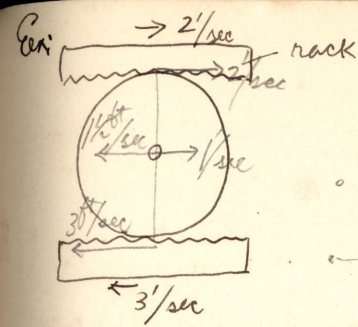 Ex:
→ 2'/sec
rack
2'/sec
1½ ft/sec
1'/sec
3 ft/sec
← 3'/sec